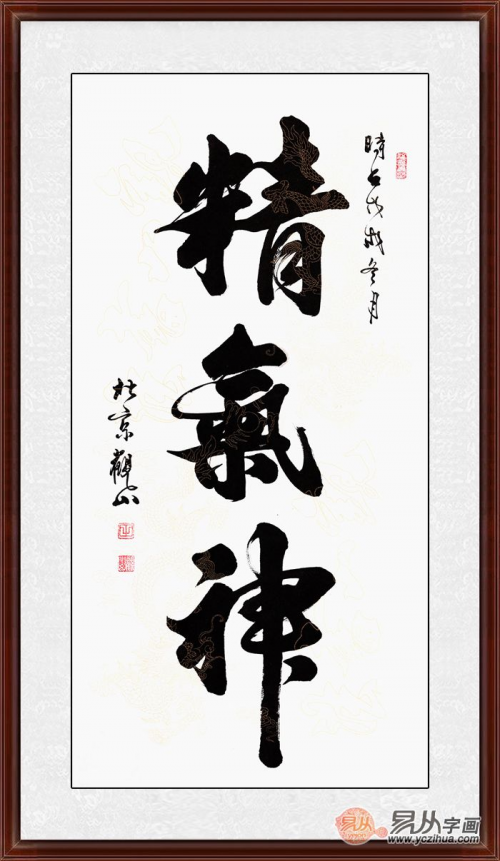 精氣神
時在戊戌冬月
於京觀山
易从
易从字画
www.yczihua.com